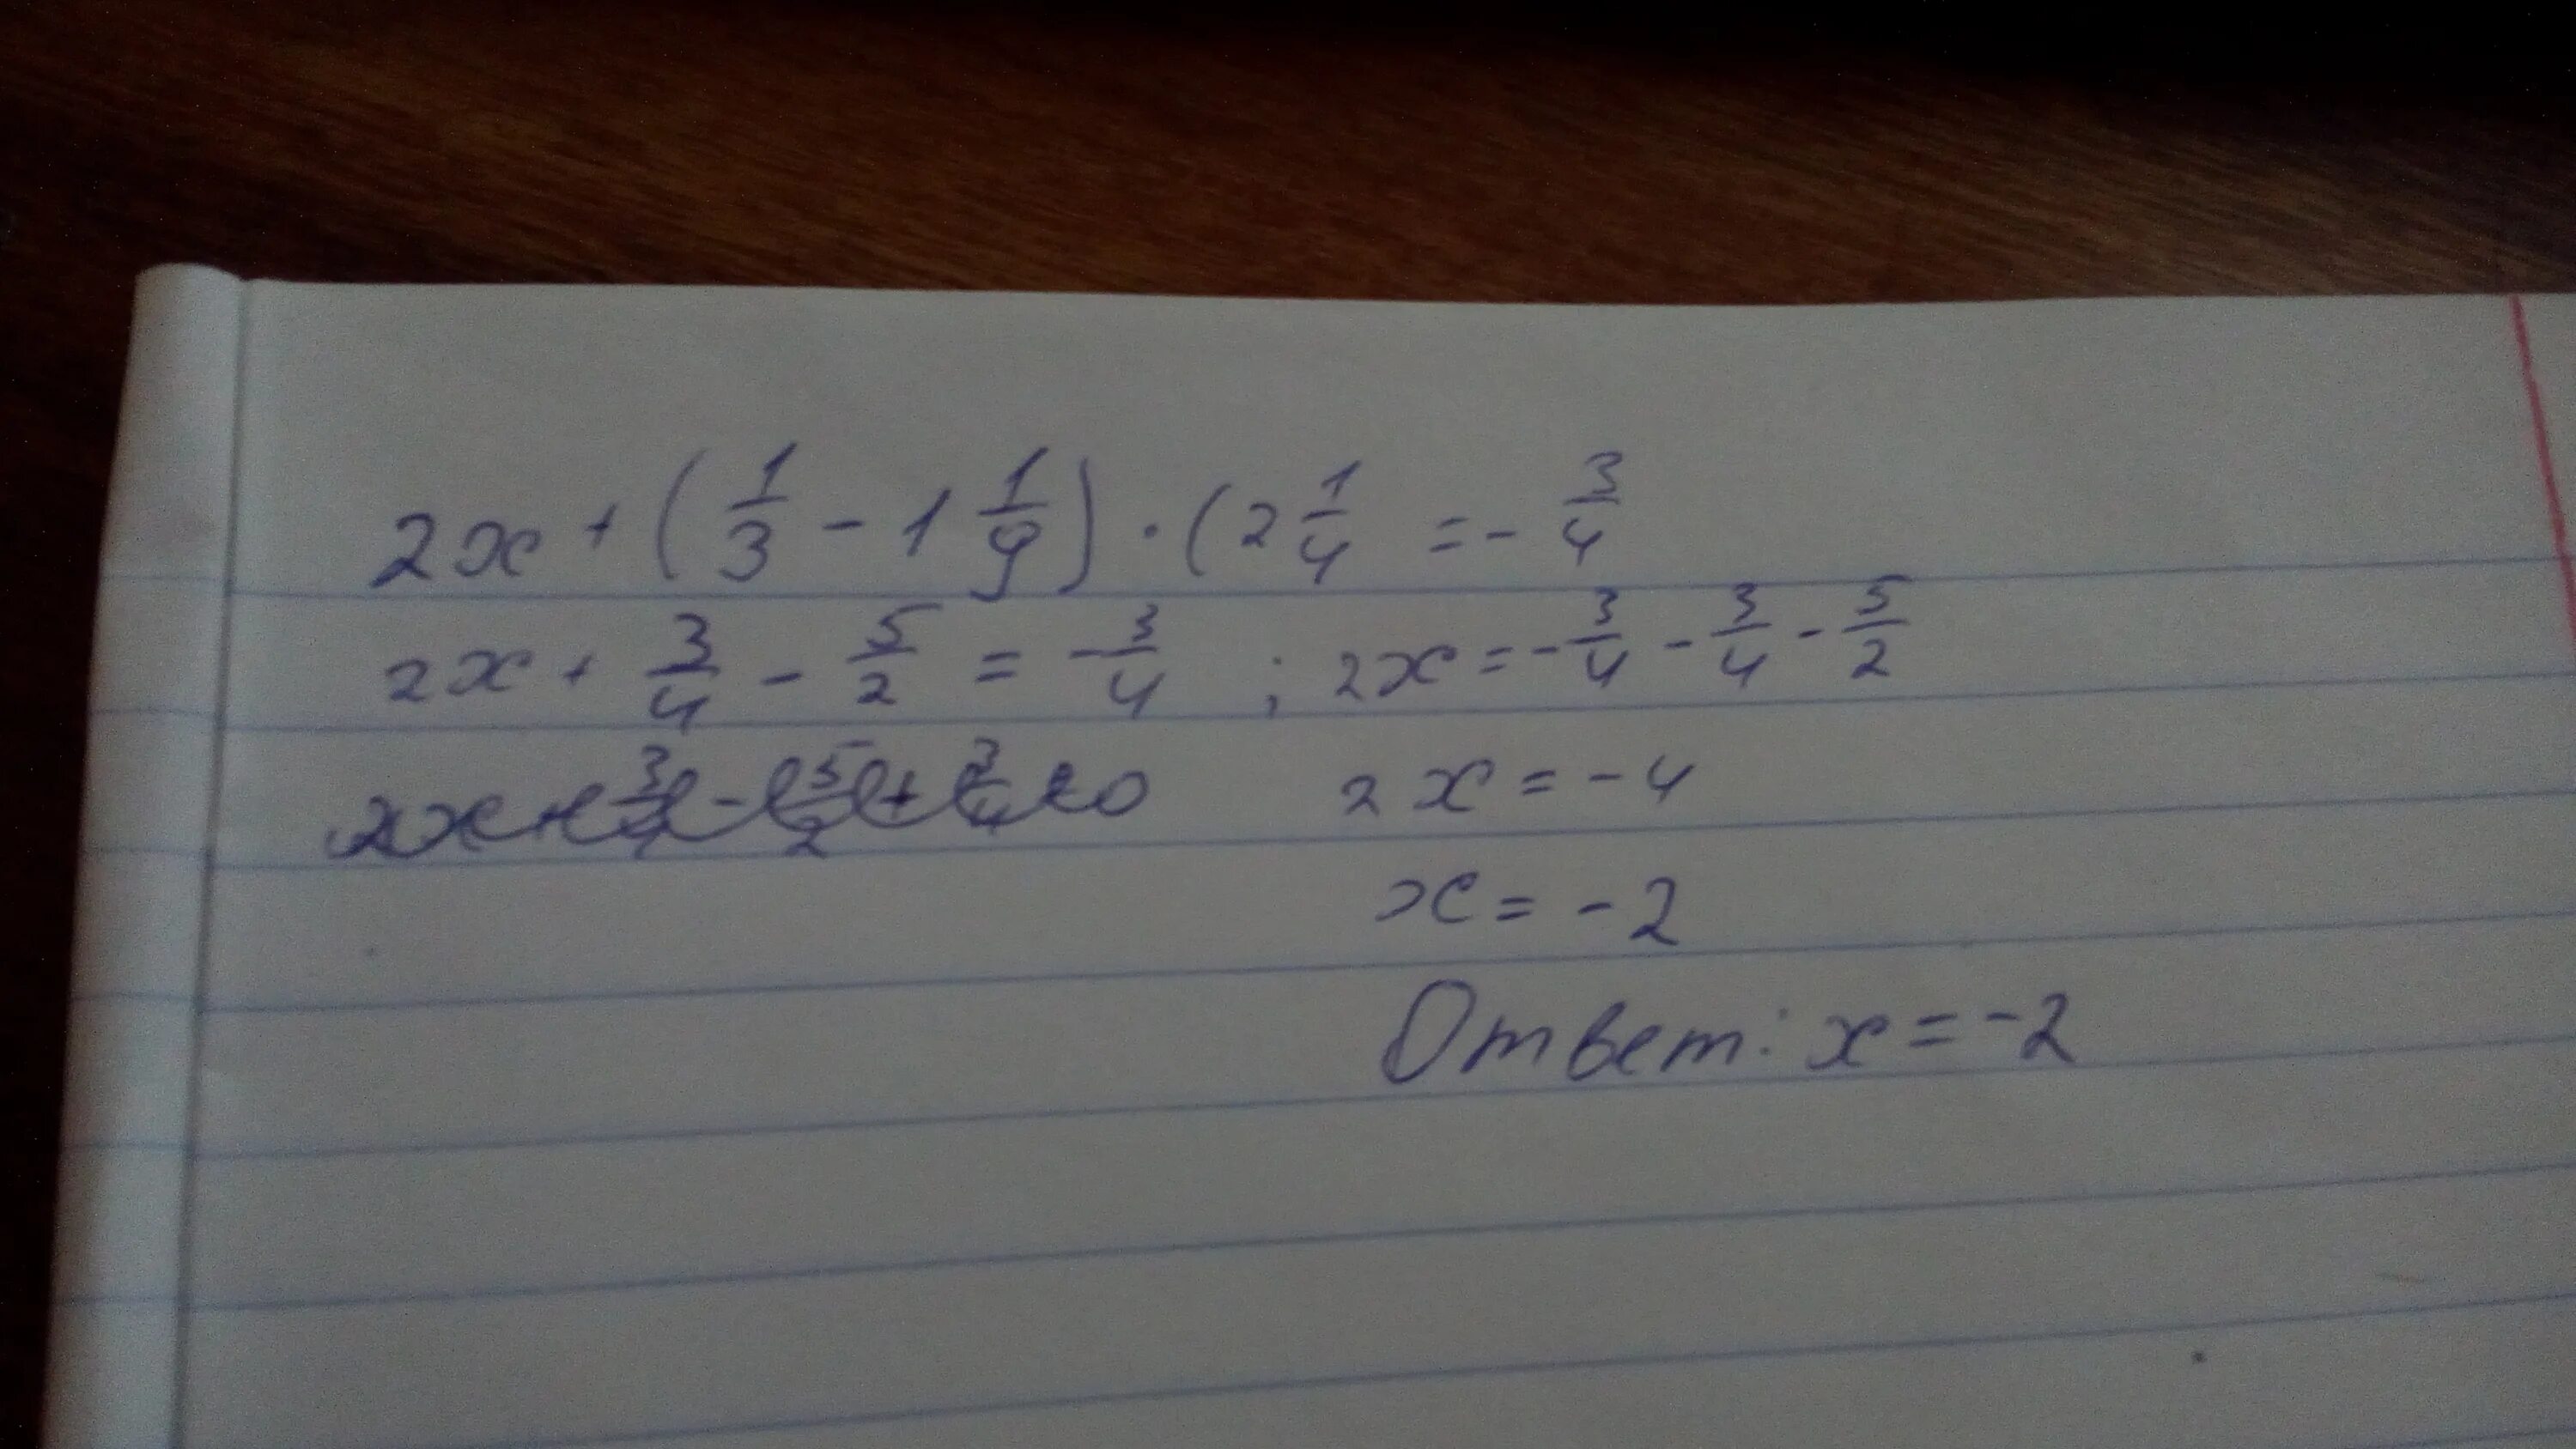 2x + (1/3 - 1 1/9) · (2 1/4 = - 3/4
2x + 3/4 - 5/2 = - 3/4 ; 2x = - 3/4 - 3/4 - 5/2
2x + 3/4 - 5/2 + 3/4 = 0 2x = - 4
x = - 2
Ответ: x = -2